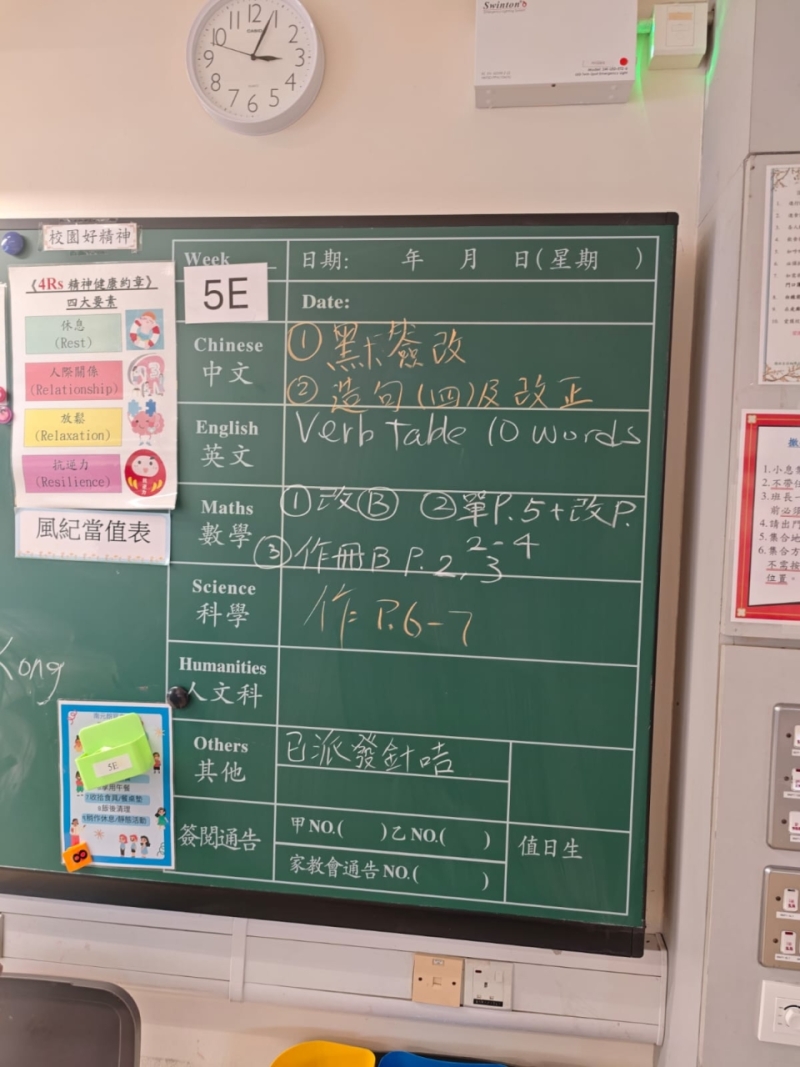 12
1
2
3
4
5
6
7
8
9
10
11
CASIO
Swinton
校園好精神
《4Rs 精神健康約章》
四大要素
休息
(Rest)
人際關係
(Relationship)
放鬆
(Relaxation)
抗逆力
(Resilience)
風紀當值表
Kong
5E
Week
5E
日期: 年 月 日(星期 )
Date:
Chinese
中文
① 黑卡簽改
② 造句(四)及改正
English
英文
Verb Table 10 words
Maths
數學
①改Ⓑ ②單P.5+改P.
2-4
③作冊B P.2,3
Science
科學
作: P.6-7
Humanities
人文科
Others
其他
已派發針咭
簽閱通告
甲NO.( )乙NO.( )
家教會通告NO.( )
值日生
8
1.小息
2.不帶
3.班長
前必須
4.請出門
5.集合地
6.集合方
不需按
位置。